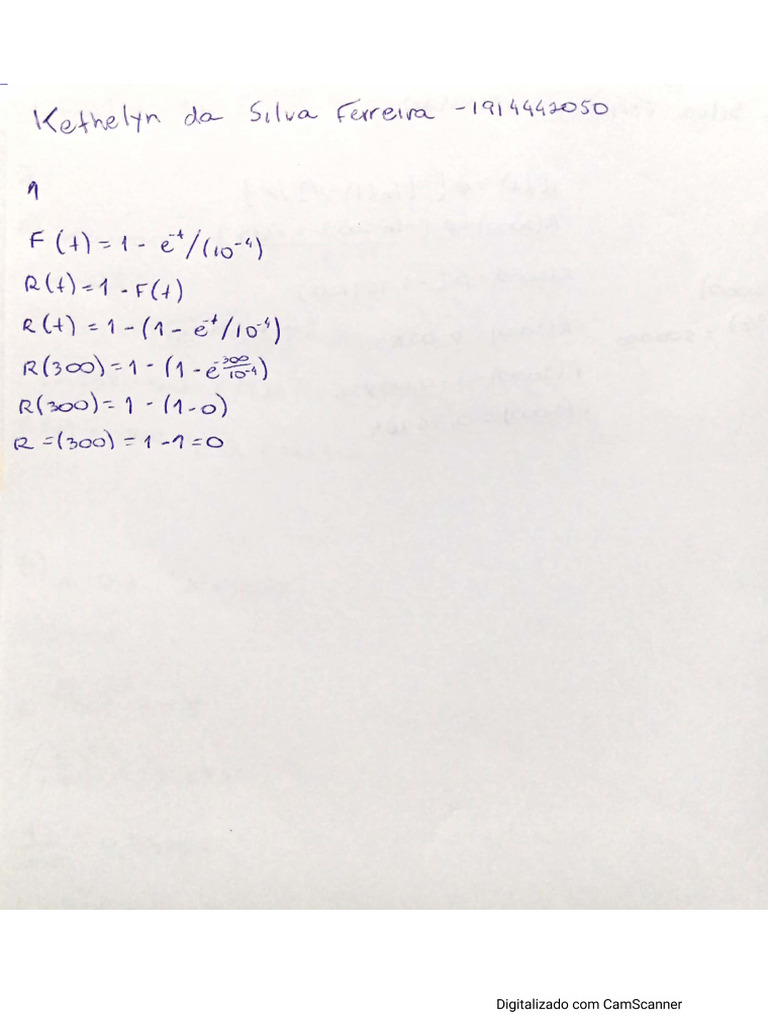 Kethelyn da Silva Ferreira -1914442050
1
F(t) = 1 - e^-t/(10^-4)
R(t) = 1 - F(t)
R(t) = 1 - (1 - e^-t/10^-4)
R(300) = 1 - (1 - e^-300/10^-4)
R(300) = 1 - (1-0)
R = (300) = 1 - 1 = 0
Digitalizado com CamScanner